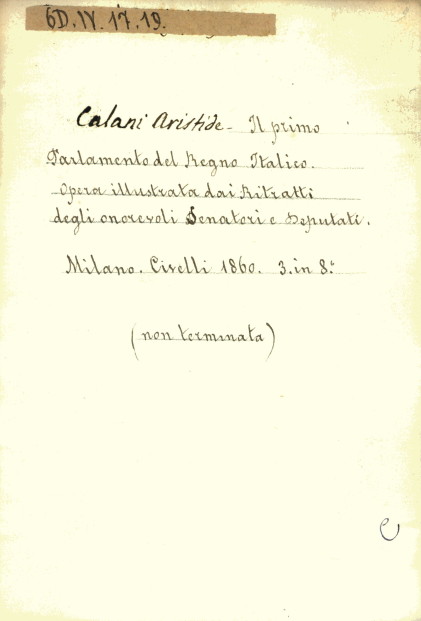 6D. IV. 17. 19.
Calani Aristide - Il primo
Parlamento del Regno Italico.
Opera illustrata dai Ritratti
degli onorevoli Senatori e Deputati.
Milano. Civelli 1860. 3. in 8.°
(non terminata)
C